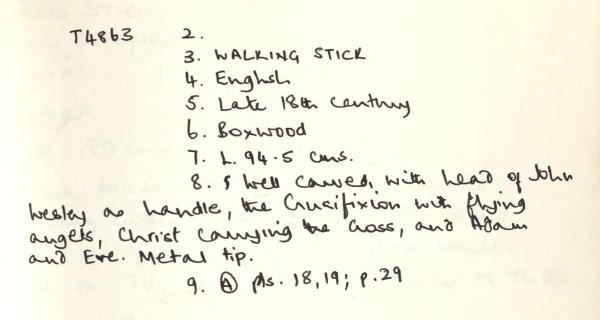 T4863 2.
3. WALKING STICK
4. English
5. Late 18th century
6. Boxwood
7. L. 94.5 cms.
8. well carved, with head of John
Wesley as handle, the Crucifixion with flying
angels, Christ carrying the Cross, and Adam
and Eve. Metal tip.
9. Ⓐ pls. 18, 19; p. 29